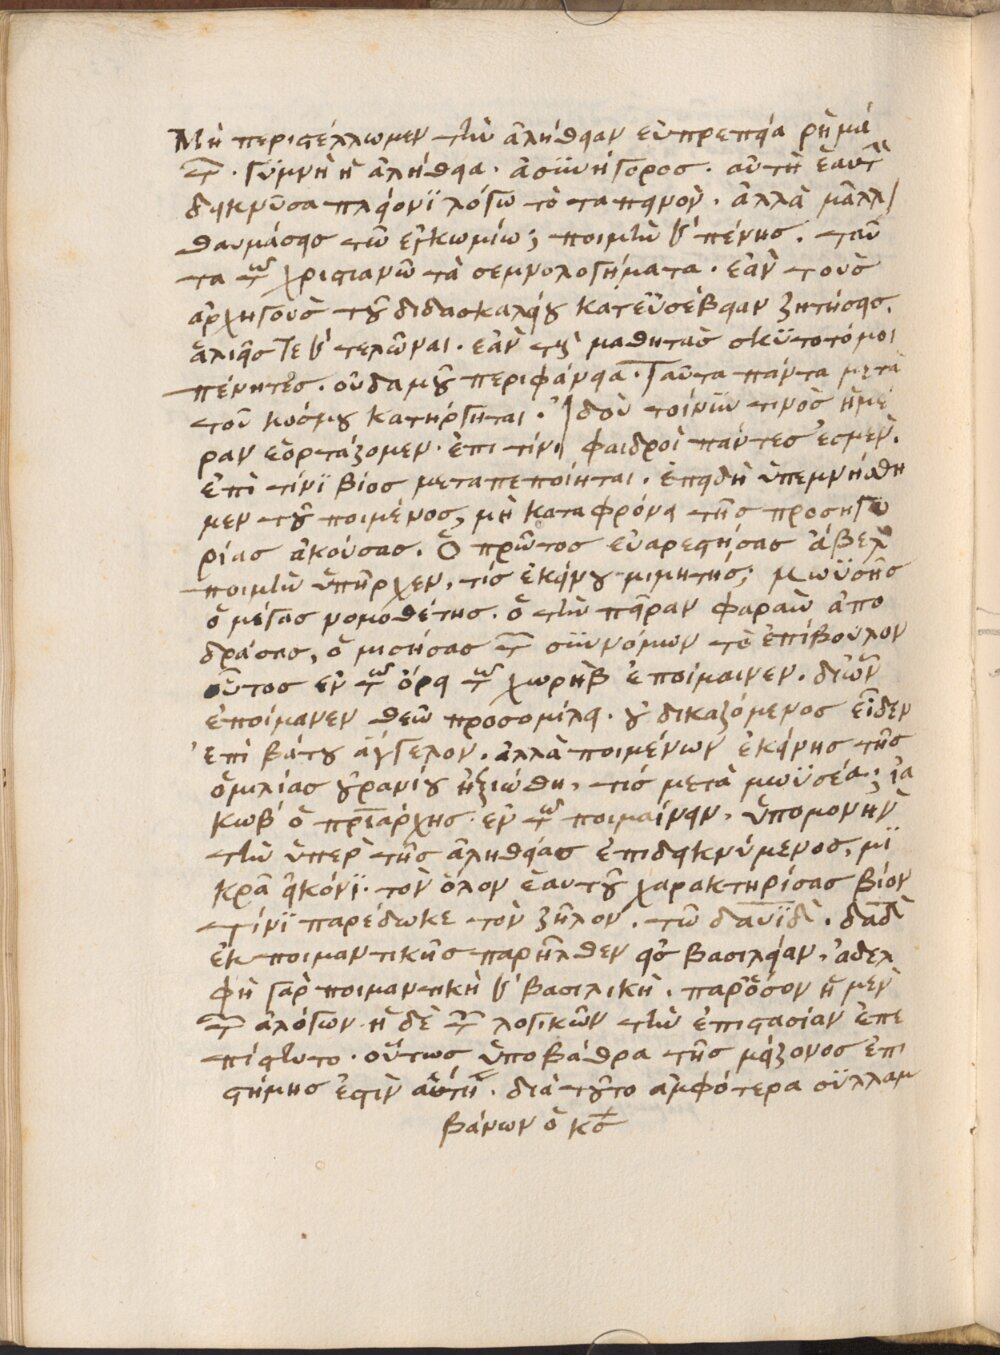 Μὴ περιστέλλωμεν τὴν ἀλήθειαν εὐπρεπεία ῥημά
των · γύμνη ἡ ἀλήθεια · ἀσϋνήγορος · αὐτὴ ἑαυτὴν
δεικνῦσα πλείονϊ λόγω τὸ ταπεινὸν · ἀλλὰ μᾶλλ
θαυμάσεις τῶ ἐγκωμίω; ποιμὴν καὶ πένης · ταῦ
τα τῶν χριστιανῶν τὰ σεμνολογήματα · ἐὰν τοὺς
ἀρχηγοὺς τοῦ διδασκαλείου κατ εὐσέβειαν ζητήσεις ·
ἁλιεῖς τε καὶ τελῶναι · ἐὰν τοὺς μαθητὰς σκϋτοτόμοι
πένητες · οὐδαμοῦ περιφάνεια · ταῦτα πάντα μετὰ
τοῦ κόσμου κατήργηται · ἰδοὺ τοίνϋν τινὸς ἡμέ
ραν ἑορτάζομεν · ἐπι τίνι φαιδροὶ πάντες ἐσμὲν ·
ἐπὶ τίνϊ βίος μεταπεποίηται · ἐπειδὴ ὑπεμνήσθη
μεν τοῦ ποιμένος, μὴ καταφρόνει τῆς προσηγο
ρίας ἀκούσας · ὁ πρῶτος εὐαρεστήσας ἄβελ
ποιμὴν ὑπῆρχεν, τίς ἐκείνου μιμητής; μωϋσῆς
ὁ μέγας νομοθέτης · ὁ τὴν πεῖραν φαραὼ ἀπο
δράσας, ὁ μισήσας τῶν σϋννόμων τὸ ἐπίβουλον
οὗτος ἐν τῶ ὄρει τῶ χωρὴβ ἐποίμαινεν · διῶν
ἐποίμανεν θεῶ προσομίλει · οὐ δικαζόμενος εἶδεν
ἐπὶ βάτου ἄγγελον · ἀλλὰ ποιμένων ἐκείνης τῆς
ὁμιλίας οὐρανίου ἠξιώθη, τις μετὰ μωϋσέα; ἰα
κωβ ὁ πριάρχης · ἐν τῶ ποιμαίνειν, ὑπομονὴν
τὴν ὑπὲρ τῆς ἀληθείας ἐπιδεικνύμενος, μϊ
κρᾶ εἰκόνϊ · τὸν ὅλον ἑαυτοῦ χαρακτηρίσας βίον
τίνϊ παρέδωκε τὸν ζῆλον · τῶ δαυϊδὶ · δαδ
ἐκ ποιμαντικῆς παρῆλθεν εἰς βασιλείαν, ἀδελ
φὴ γὰρ ποιμαντικὴ καὶ βασιλικὴ · παρὅσον ἡ μὲν
τῶν ἀλόγων · ἡ δὲ τῶν λογικῶν τὴν ἐπιστασίαν ἐπε
πίστευτο · οὕτως ὑποβάθρα τῆς μείζονος ἐπι
στήμης ἐστὶν αὕτη · διὰ τοῦτο ἀμφότερα σϋλλαμ
βάνων ὁ κς